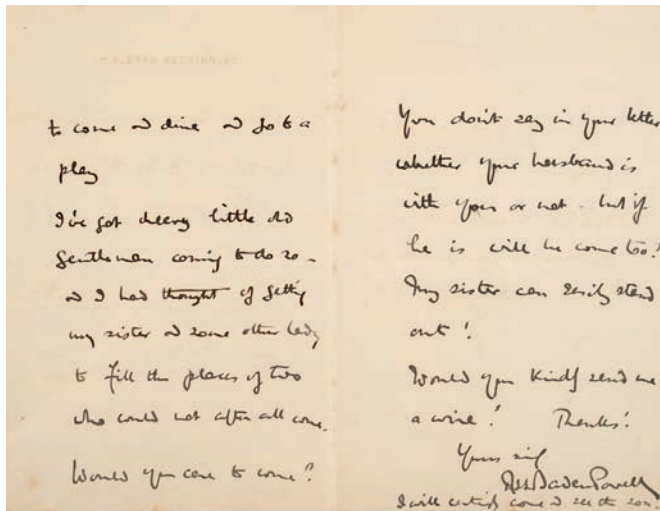 to come & dine & go to a
play
I've got cheery little old
Gentlemen coming to do so -
& I had thought of getting
my sister & some other lady
to fill the places of two
who could not after all come.
Would you care to come?
You don't say in your letter
whether your husband is
with you or not - but if
he is will he come too?
My sister can easily stand
out!
Would you kindly send me
a wire! Thanks!
Yours
RSS Baden Powell
I will certainly come & see the son.